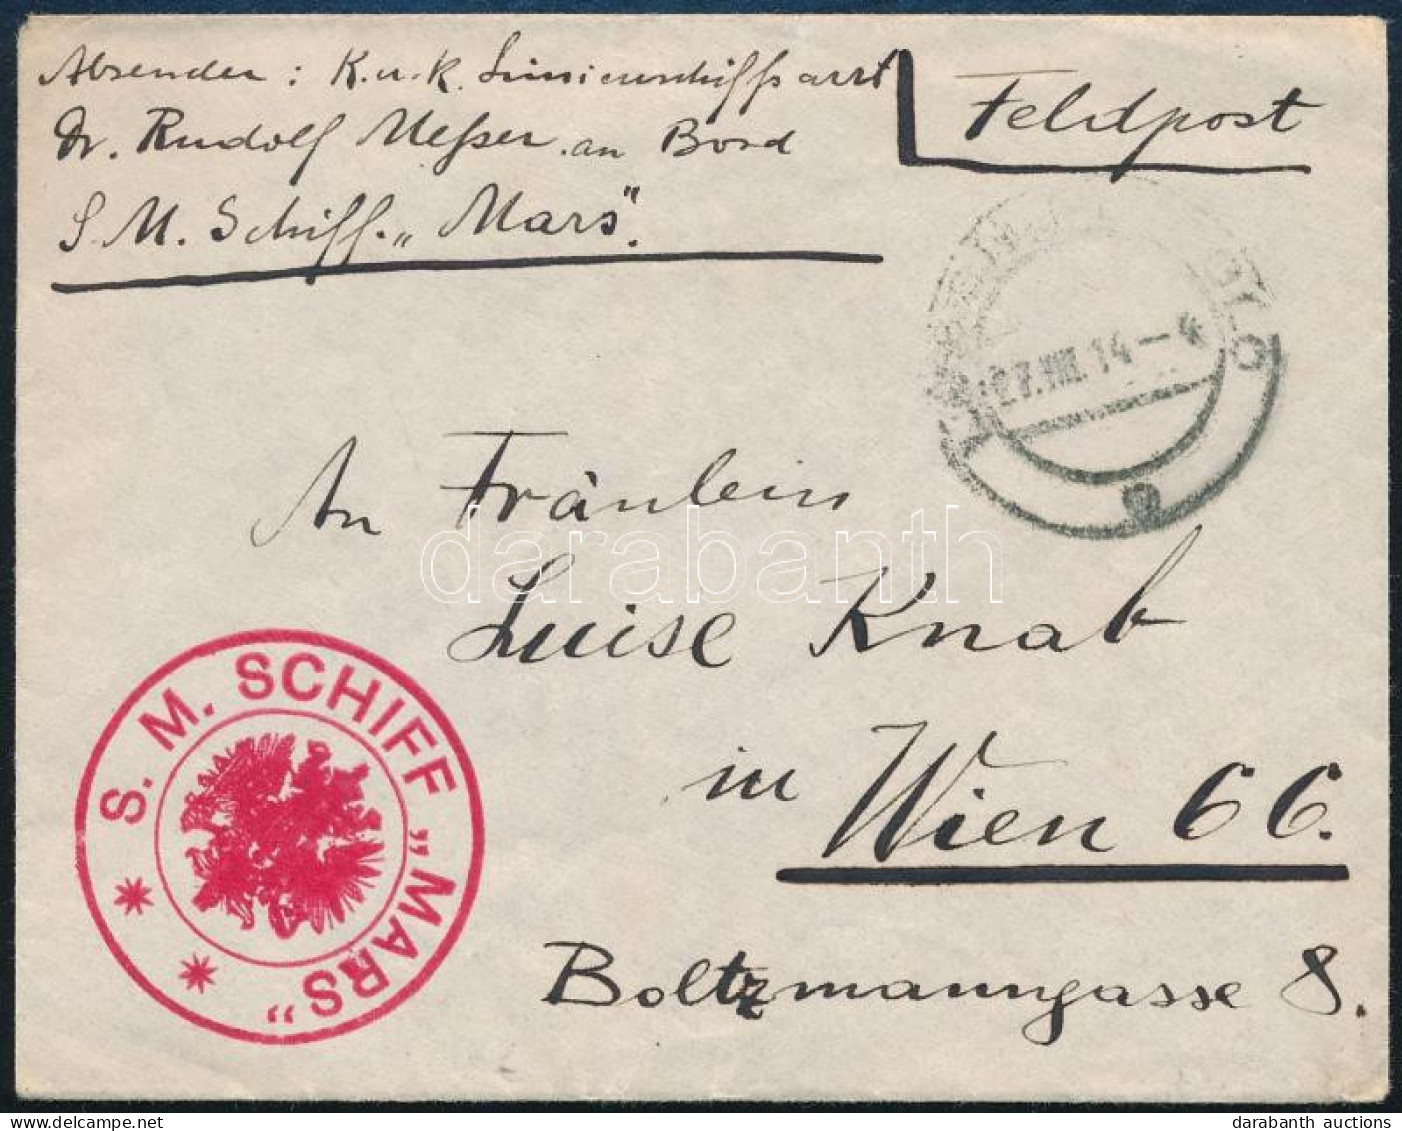 Absender: K.u.k. Linienschiffsarzt
Dr. Rudolf Messer an Bord
S. M. Schiff „Mars".
Feldpost
27.VIII.14-4
An Fräulein
Luise Knab
in Wien 66.
Boltzmanngasse 8.
S. M. SCHIFF „MARS"
darabanth
darabanth auctions